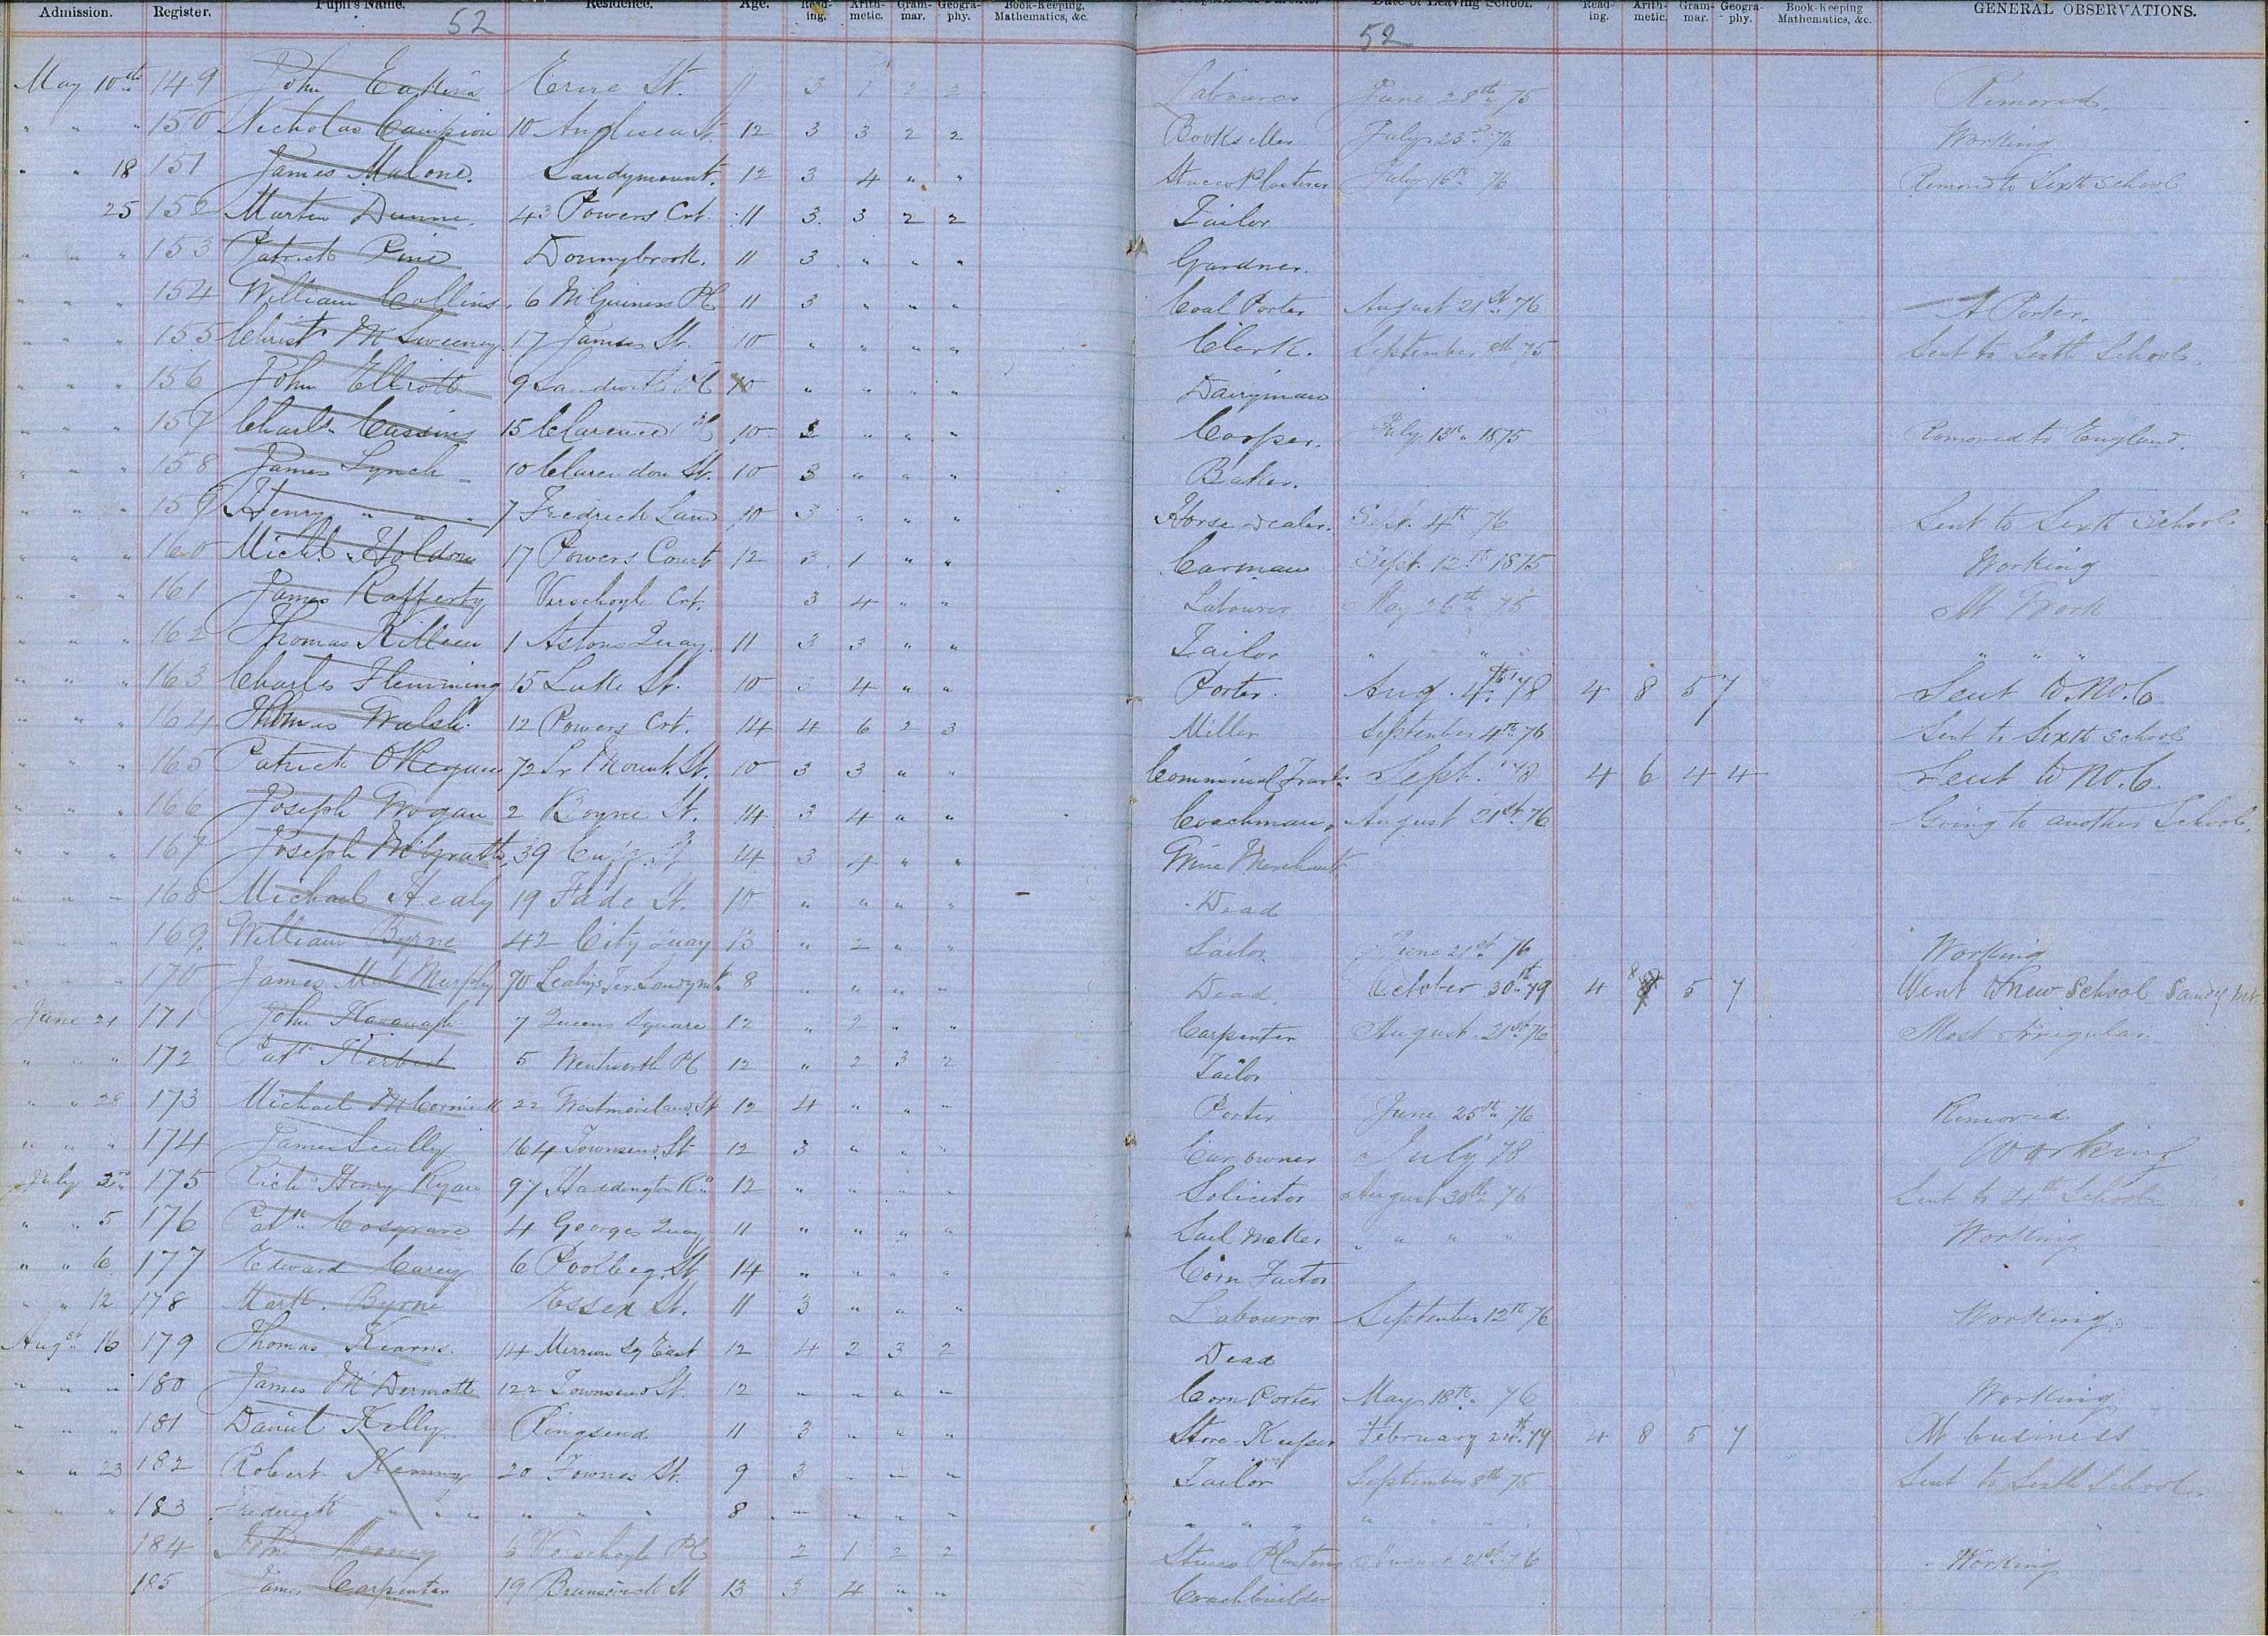 Admission. Register. Pupil's Name. Residence. Age. Read-ing. Arith-metic. Gram-mar. Geogra-phy. Book-Keeping, Mathematics, &c. Date of Leaving School. Read-ing. Arith-metic. Gram-mar. Geogra-phy. Book-Keeping Mathematics, &c. GENERAL OBSERVATIONS.
52 52
May 10th 149 John Eakins Erne St. 11 3 1 2 2 Labourer June 28th 75 Removed.
" " " 150 Nicholas Campion 10 Anglesea St. 12 3 3 2 2 Bookseller July 23rd 76 Working
" " 18 151 James Malone. Sandymount. 12 3 4 " " Stucco Plasterer July 16th 76 Removed to Sixth School
25 152 Martin Dunne. 43 Powers Crt. 11 3. 3 2 2 Tailor
" " " 153 Patrick Donnybrook. 11 3 " " " Gardner.
" " " 154 William Collins. 6 McGuiness Pl 11 3 " " " Coal Porter August 21st 76 A Porter.
" " " 155 Christr McSweeney 17 James St. 10 " " " " Clerk. September 8th 75 Sent to Sixth School.
" " " 156 John Elliott 9 Pl 10 " " " " Dairyman
" " " 157 Charls. Cussins 15 Clarence Pl 10 3 " " " July 13th 1875 Removed to England.
" " " 158 James Lynch 10 Clarendon St. 10 3 " " " Baker.
" " " 159 Henry " " " 7 Fredrick Lane 10 3 " " " Horse Dealer. Sept. 4th 76 Sent to Sixth School
" " " 160 Michl. Holdon 17 Powers Court 12 3 1 " " Carman Sept. 12th 1875 Working
" " " 161 James Rafferty Verschoyle Crt. 3 4 " " Labourer May 26th 75 At Work
" " " 162 Thomas Killeen 1 Astons Quay. 11 3 3 " " Tailor " " " " " " "
" " " 163 Charles Flemming 15 Luke St. 10 3 4 " " Porter. Aug. 4th '78 4 8 5 7 Sent to No. 6
" " " 164 Thomas Walsh 12 Powers Crt. 14 4 6 2 3 Miller September 4th 76 Sent to Sixth School
" " " 165 Patrick O'Regan 72 Lr Mount. St. 10 3 3 " " Commercial Travl. Sept. '78 4 6 4 4 Sent to No. 6.
" " " 166 Joseph Grogan 2 Boyne St. 14 3 4 " " Coachman. August 21st 76 Going to another School.
" " " 167 Joseph McGrath. 39 Cuffe St 14 3 4 " " Wine Merchant
" " " 168 Michael Healy 19 Fade St. 10 " " " " Dead
" " " 169. William Byrne 42 City Quay 13 " 2 " " Sailor June 21st 76 Working
" " " 170 James Murphy 70 Ter. Sandymt. 8 " " " " Dead. October 30th 79 4 8 5 7 Went to new School Sandymt
June 21 171 John Kavanagh 7 Queens Square 12 " 2 " " Carpenter August 21st 76 Most Irregular
" " " 172 Patk. Herbert 5 Wentworth Pl 12 " 2 3 2 Tailor
" " 28 173 Michael McCormick 22 Westmoreland St 12 4 " " " Porter June 25th 76 Removed
" " " 174 James Scully 164 Townsend St 12 3 " " " Car owner July 78 Working
July 2nd 175 Richd Henry Ryan 97 Haddington Rd 12 " " " " Solicitor August 30th 76 Sent to 4th School
" " 5 176 Patk. Cosgrave 4 Georges Quay 11 " " " " Sail Maker " " " " Working
" " 6 177 Edward Carey 6 Poolbeg. St 14 " " " " Corn Factor
" " 12 178 Mark. Byrne Essex St. 11 3 " " " Labourer September 12th 76 Working.
Augst 16 179 Thomas Kearns. 14 Merrion Sq East 12 4 2 3 2 Dead
" " " 180 James McDermott 122 Townsend St. 12 " " " " Corn Porter May 18th 76 Working
" " " 181 Daniel Kelly Ringsend 11 3 " " " Store-Keeper February 24th 79 4 8 5 7 At business
" " 23 182 Robert 20 Townes St. 9 3 " " " Tailor September 8th 75 Sent to Sixth School.
" " " 183 Frederick " " " " " " 8 " " " " " " " " " "
184 John Mooney Verschoyle Pl 2 1 2 2 Stucco Plasterer August 21st 76 Working
185 James Carpenter 19 Brunswick St 13 3 4 " " Coachbuilder